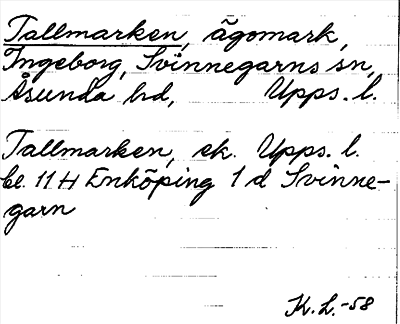 Tallmarken, ägomark,
Ingeborg, Svinnegarns sn,
Åsunda hd, Upps. l.
Tallmarken, ek. Upps. l.
bl. 11 H Enköping 1 d Svinne-
garn
K.L.-58